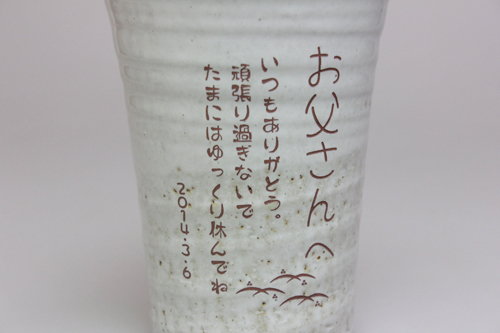 お父さんへ
いつもありがとう。
頑張り過ぎないで
たまにはゆっくり休んでね
2014.3.6